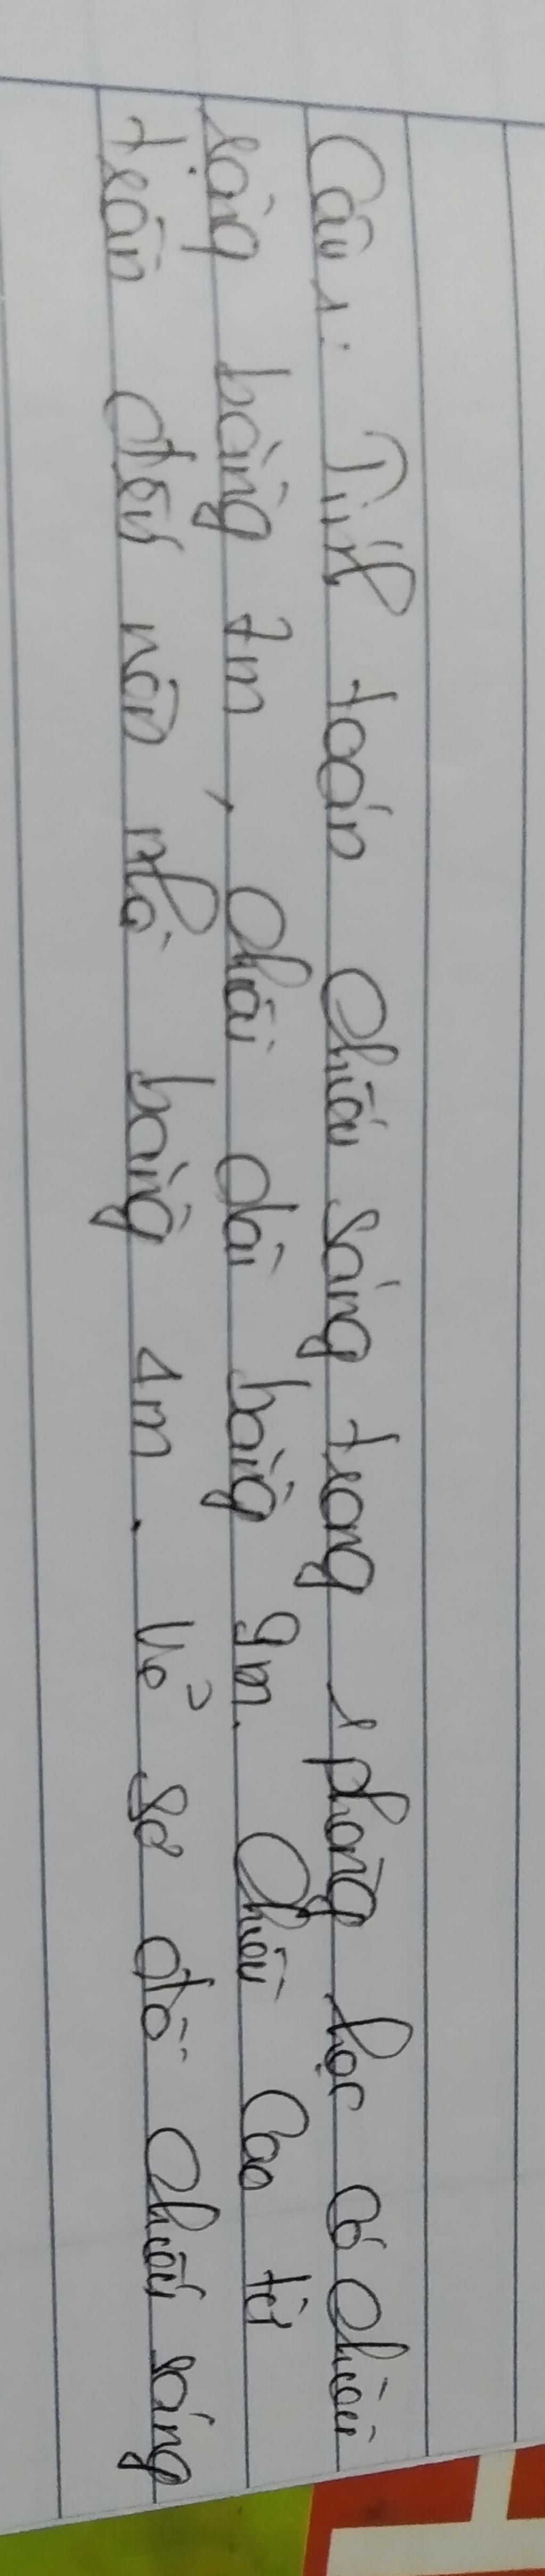 Câu 1: Tính toán chiếu sáng trong 1 phòng học có chiều
rộng bằng 7m, chiều dài bằng 9m. Chiều cao từ
trần đến nền nhà bằng 4m. Vẽ sơ đồ chiếu sáng